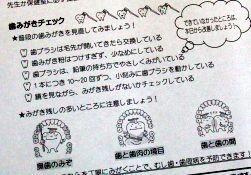 先生か保健室に
歯みがきチェック
★普段の歯みがきを見直してみましょう!
できていなかったところは、
本日から改善しましょう!
歯ブラシは毛先が開いてきたら交換している
歯みがき粉はつけすぎず、少なめにしている
歯ブラシは、鉛筆の持ち方でやさしくみがいている
1か所につき10~20回ずつ、小刻みに歯ブラシを動かしている
鏡を見ながら、歯みがき残しがないかチェックしている
★みがき残しの多いところに注意しましょう!
奥歯のみぞ
歯と歯肉の境目
歯と歯の間
を丁寧にみがくことで、むし歯・歯周病を予防できます!